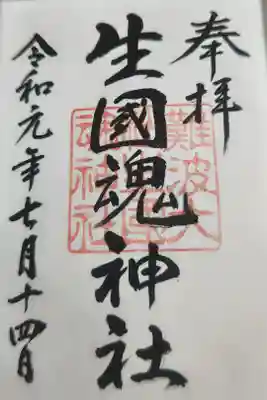 奉拝
生國魂神社
令和元年七月十四日
難波大
社